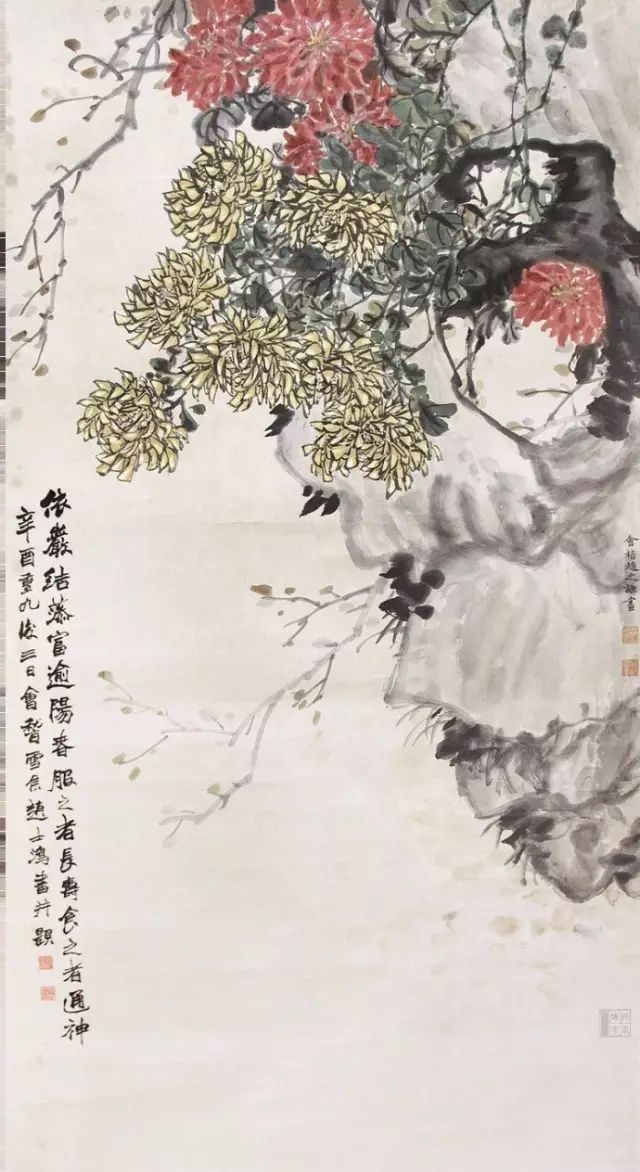 會稽趙之謙畫
依巖結蕊富逾陽春服之者長壽食之者通神
辛酉重九後三日會稽雪侯趙士鴻并題